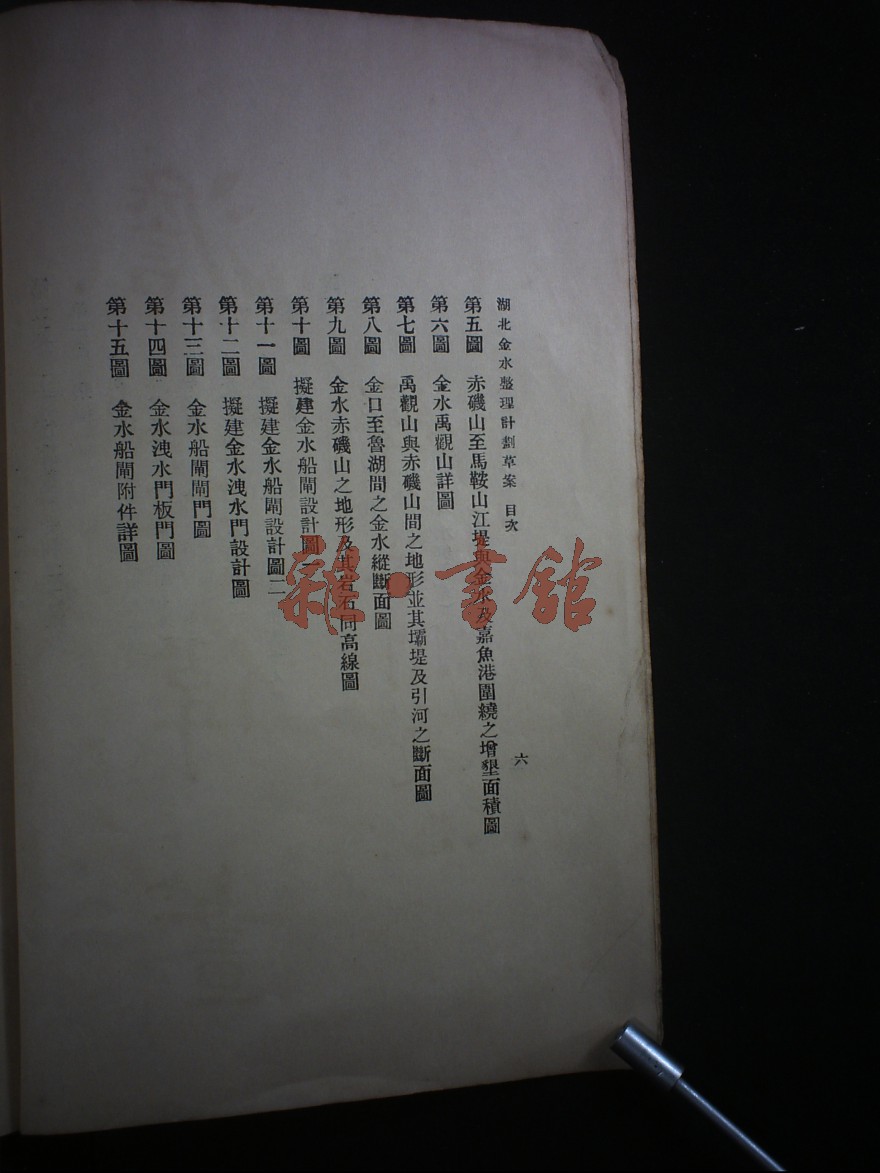 湖北金水整理計劃草案 目次
六
第五圖 赤磯山至馬鞍山江堤與金水及嘉魚港圍繞之增墾面積圖
第六圖 金水禹觀山詳圖
第七圖 禹觀山與赤磯山間之地形並其壩堤及引河之斷面圖
第八圖 金口至魯湖間之金水縱斷面圖
第九圖 金水赤磯山之地形及其岩石同高線圖
第十圖 擬建金水船閘設計圖一
第十一圖 擬建金水船閘設計圖二
第十二圖 擬建金水洩水門設計圖
第十三圖 金水船閘閘門圖
第十四圖 金水洩水門板門圖
第十五圖 金水船閘附件詳圖
雜·書館